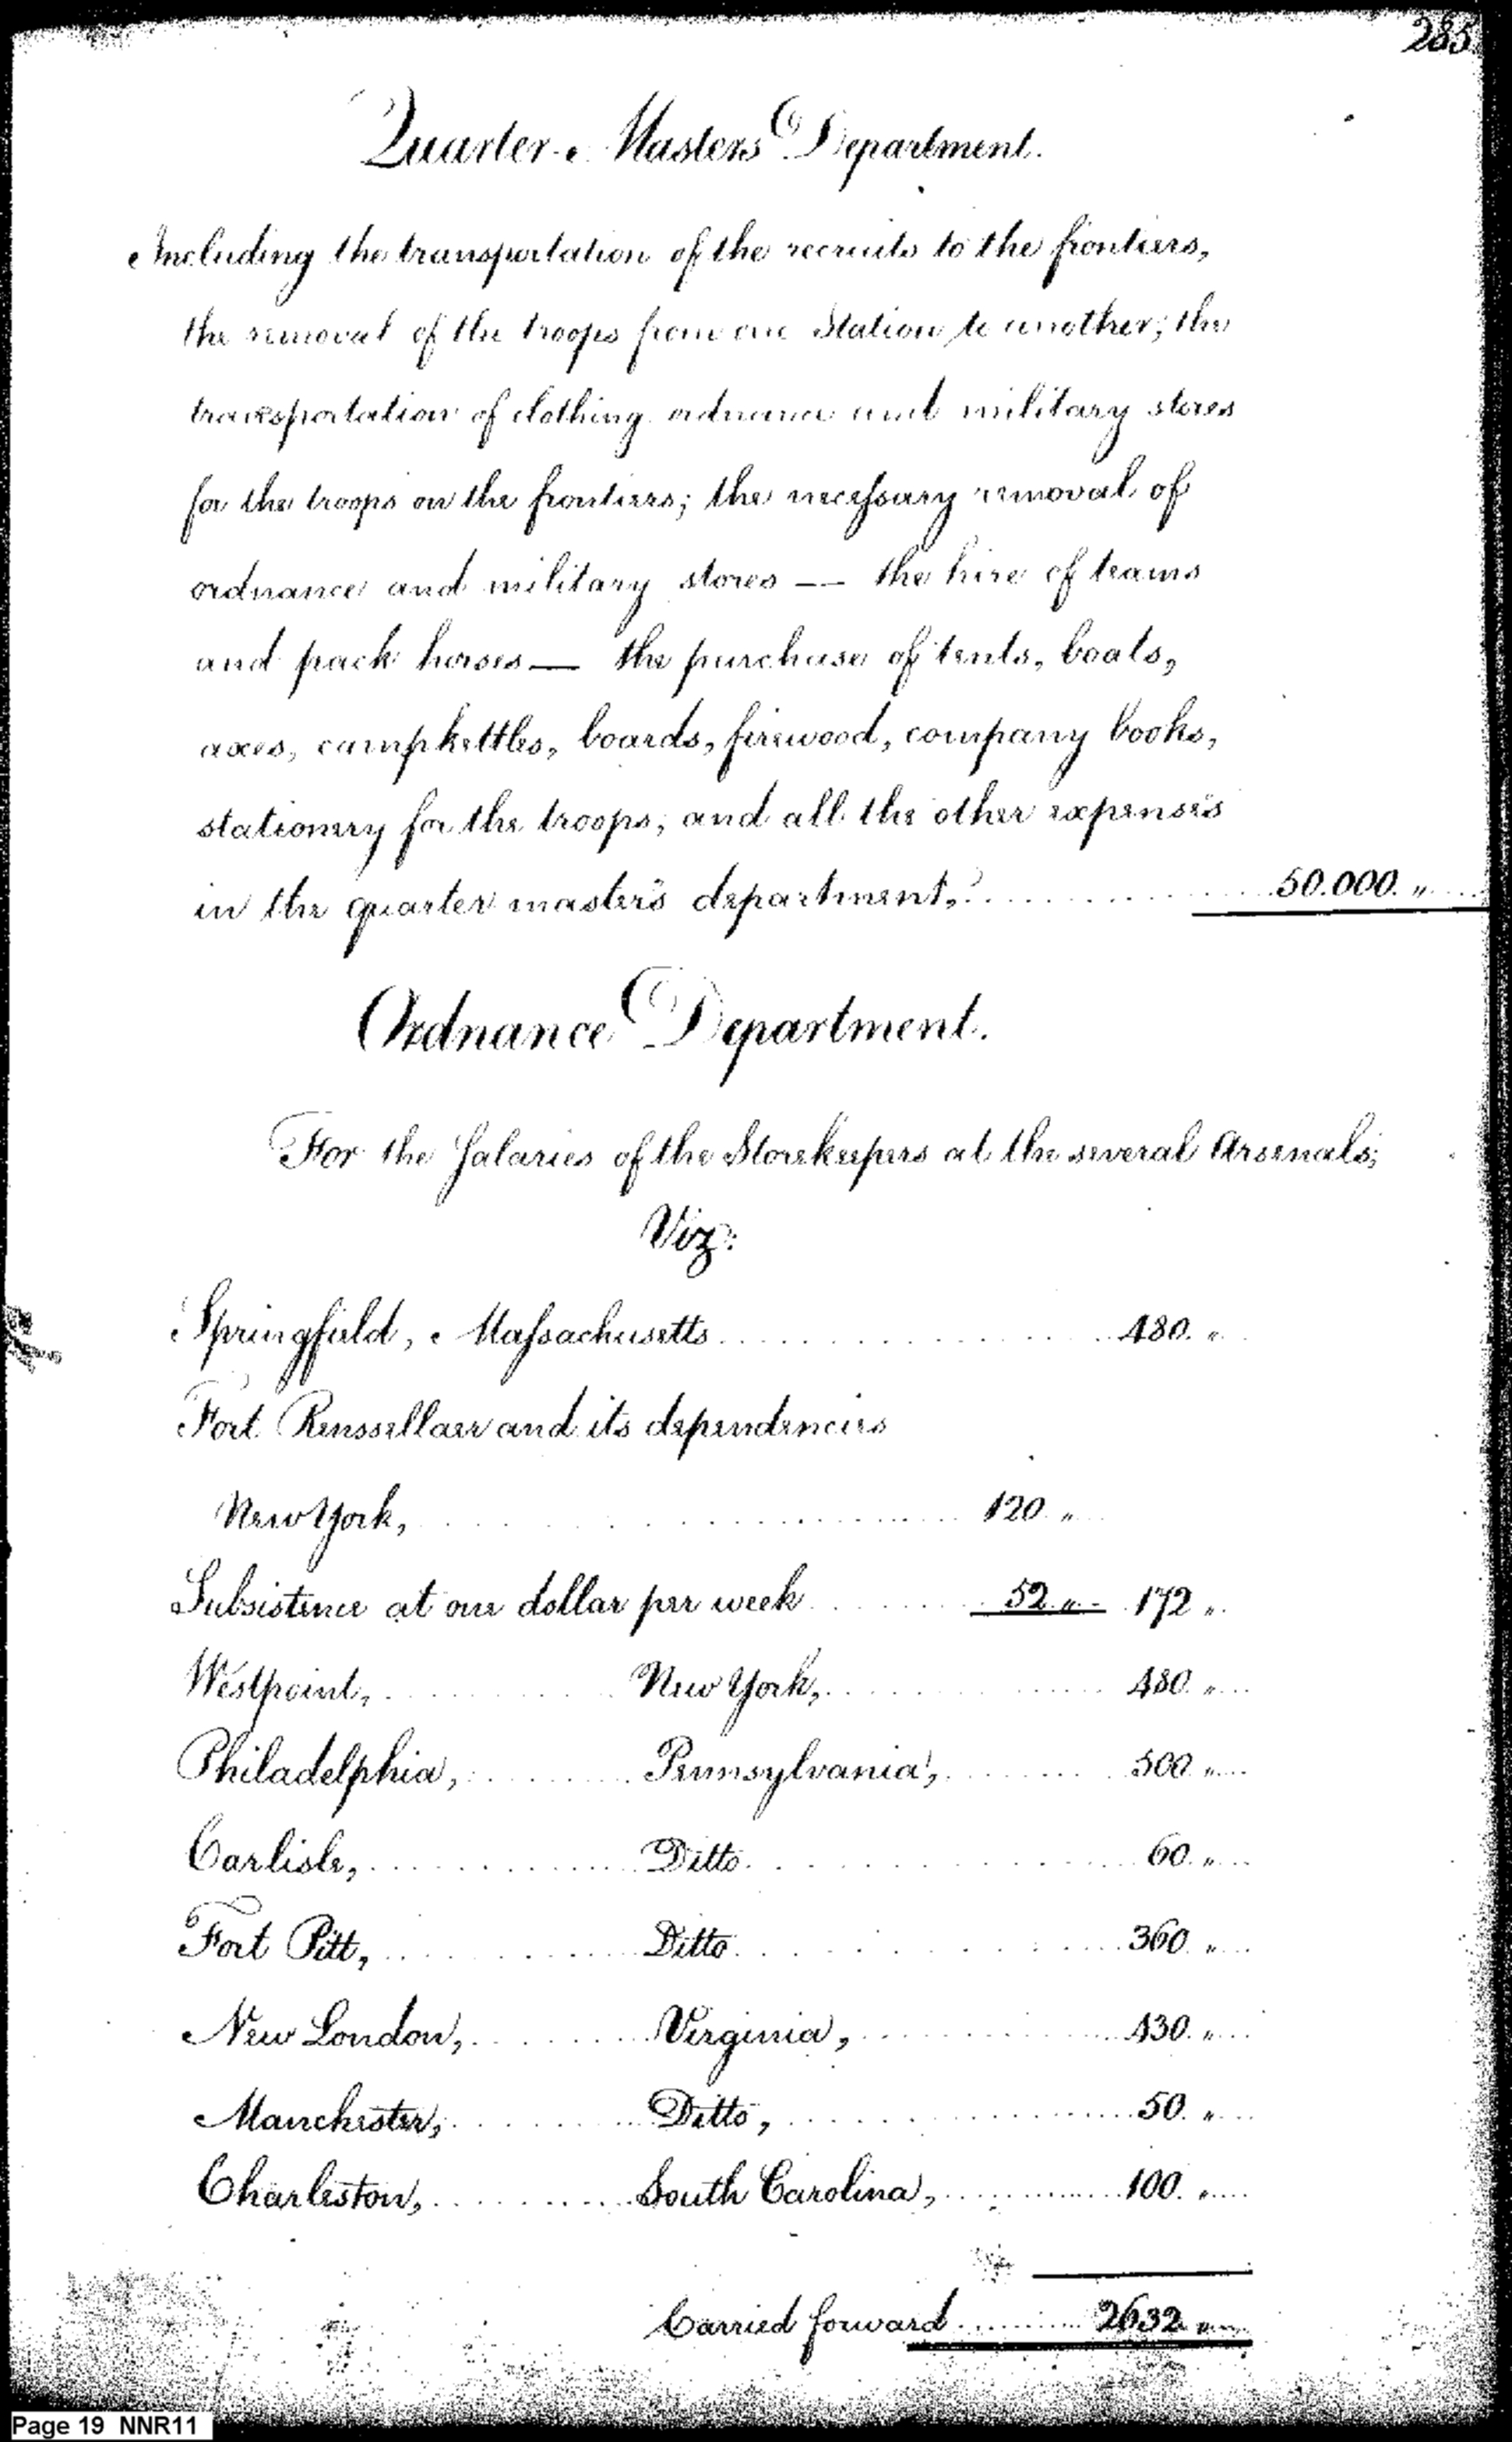 285
Quarter Masters Department.
Including the transportation of the recruits to the frontiers,
the removal of the troops from one Station to another; the
transportation of clothing ordnance and military stores
for the troops on the frontiers; the necessary removal of
ordnance and military stores —— the hire of teams
and pack horses — the purchase of tents, boats,
axes, campkettles, boards, firewood, company books,
stationery for the troops, and all the other expenses
in the quarter master's department, .......... 50.000. "
Ordnance Department.
For the Salaries of the Storekeepers at the several Arsenals;
Viz:
Springfield, Massachusetts .......... 480. "
Fort Renssellaer and its dependencies
New York, .......... 120 "
Subsistence at one dollar per week .......... 52. " 172 "
Westpoint, .......... New York, .......... 480. "
Philadelphia, .......... Pennsylvania, .......... 500 "
Carlisle, .......... Ditto .......... 60. "
Fort Pitt, .......... Ditto .......... 360 "
New London, .......... Virginia, .......... 430. "
Manchester, .......... Ditto, .......... 50. "
Charleston, .......... South Carolina, .......... 100. "
Carried forward .......... 2632 "
Page 19 NNR11